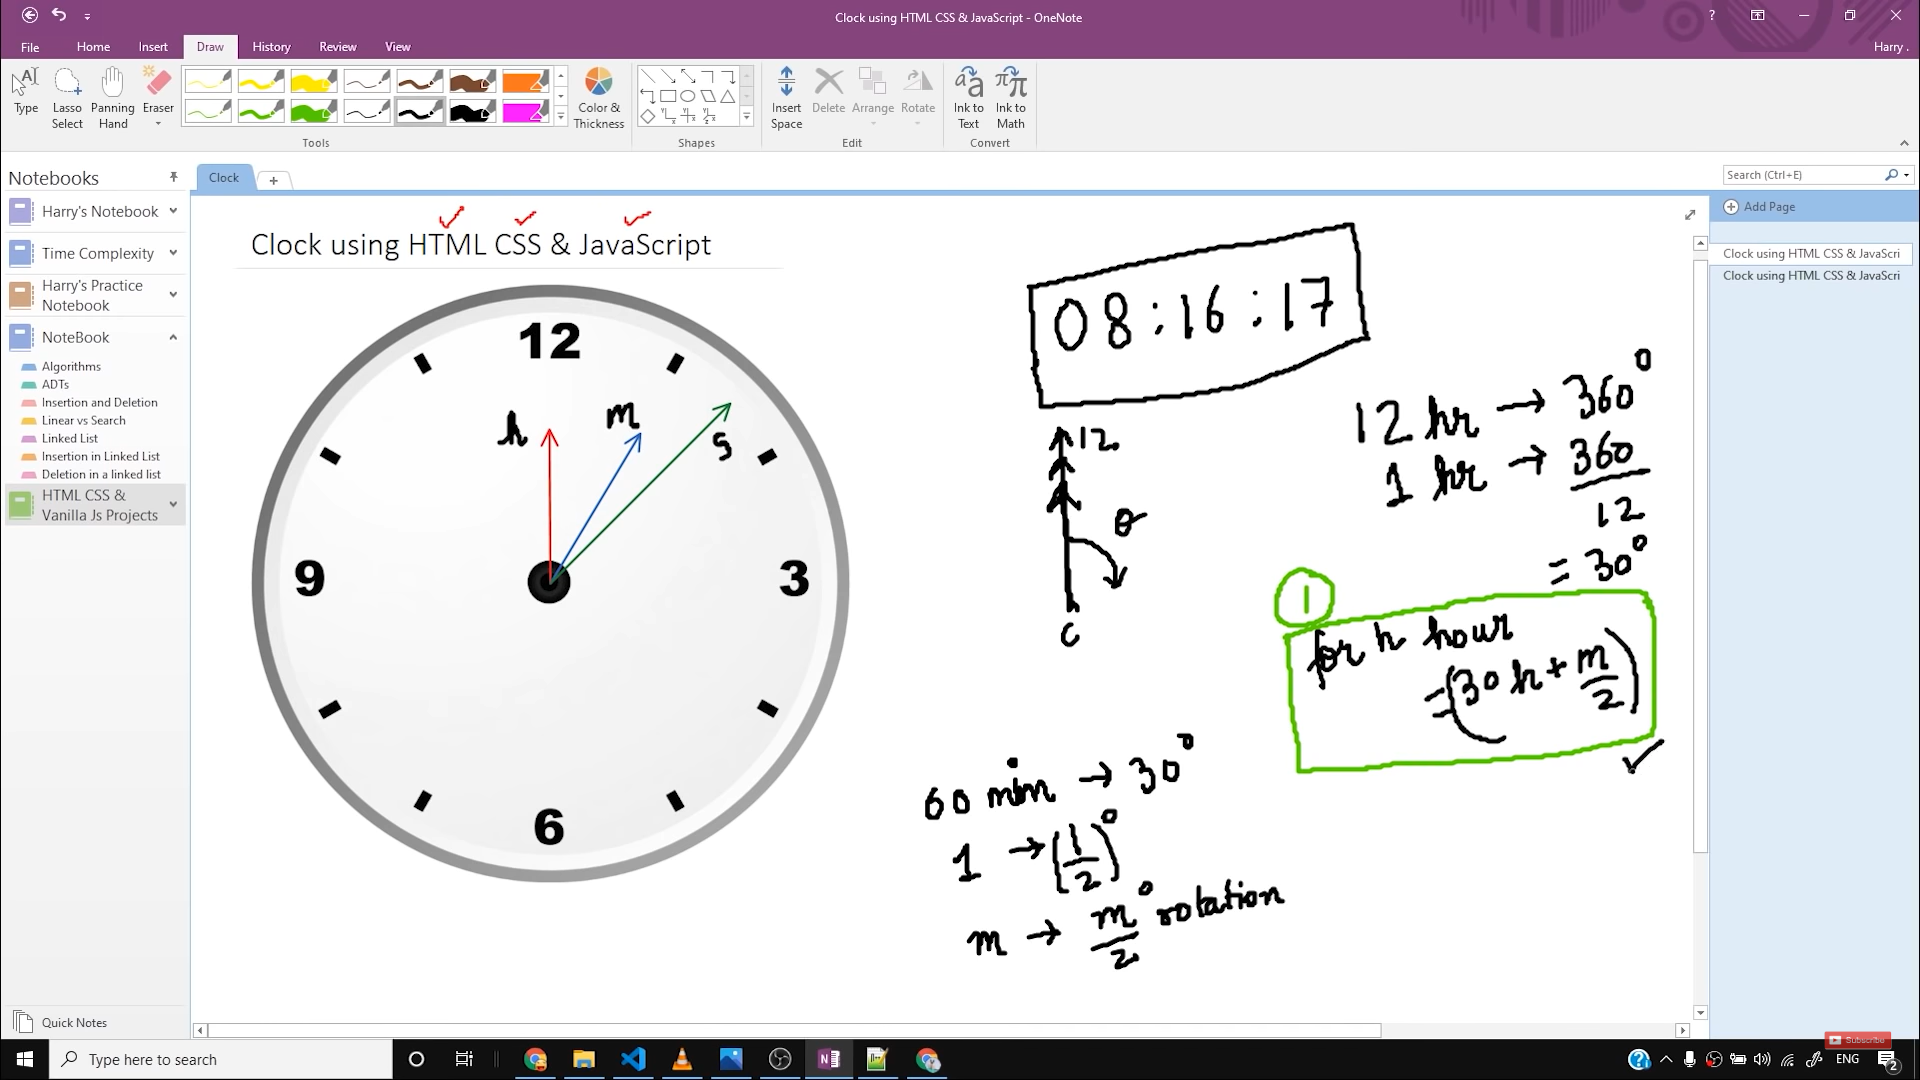 Clock using HTML CSS & JavaScript - OneNote
File Home Insert Draw History Review View
Harry .
Type
Lasso Select
Panning Hand
Eraser
Color & Thickness
Insert Space
Delete
Arrange
Rotate
Ink to Text
Ink to Math
Tools
Shapes
Edit
Convert
Notebooks
Harry's Notebook
Time Complexity
Harry's Practice Notebook
NoteBook
Algorithms
ADTs
Insertion and Deletion
Linear vs Search
Linked List
Insertion in Linked List
Deletion in a linked list
HTML CSS &
Vanilla Js Projects
Quick Notes
Clock
Search (Ctrl+E)
Add Page
Clock using HTML CSS & JavaScri
Clock using HTML CSS & JavaScri
Clock using HTML CSS & JavaScript
12
3
6
9
h
m
s
08:16:17
12
θ
C
12 hr → 360°
1 hr → 360
12
= 30°
1
for h hour
= (30h + m/2)
60 min → 30°
1 → (1/2)°
m → m/2° rotation
Type here to search
ENG
2
Subscribe